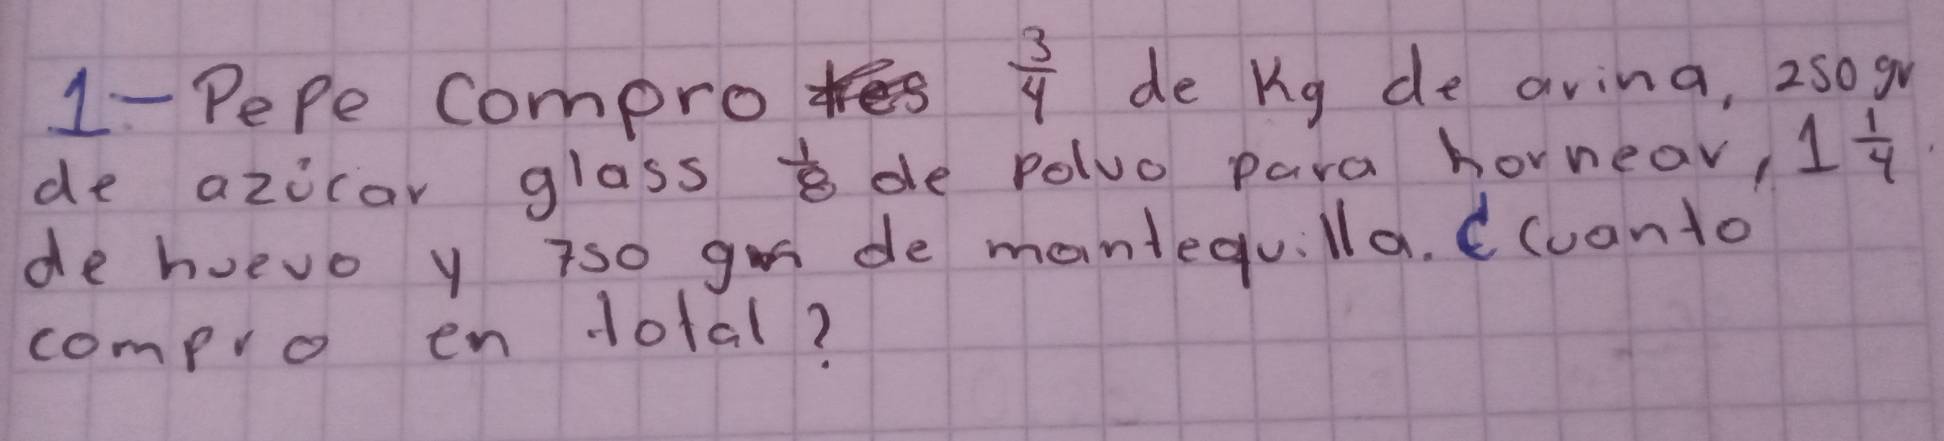 1- Pepe compro tres 3/4 de Kg de arina, 250 gr
de azúcar glass 1/8 de polvo para hornear, 1 1/4
de huevo y 750 gm de mantequilla. ¿Cuanto
compro en total?